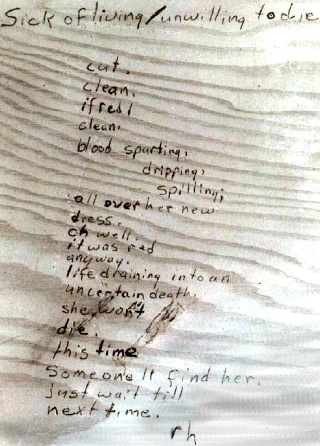 Sick of living/unwilling to die
cut.
clean.
if red I
clean.
blood spurting.
dripping.
spilling;
all over her new
dress.
oh well.
it was red
anyway.
life draining into an
uncertain death.
she won't
die.
this time
Someone'll find her.
just wait till
next time.
rh